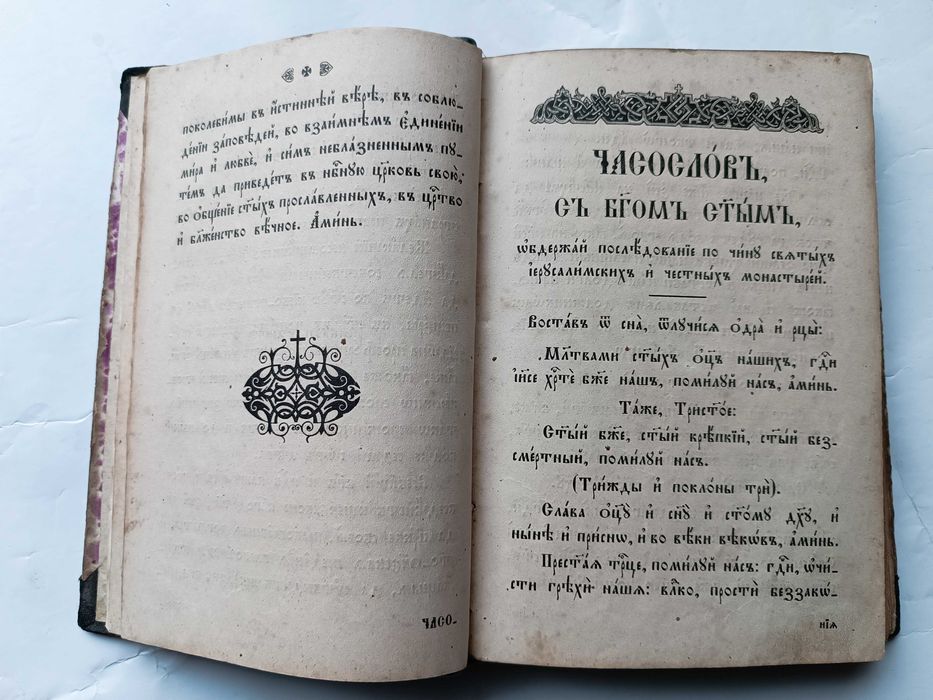 поколебимы въ и҆́стиннѣй вѣ́рѣ, въ соблю-
де́нїи за́повѣдей, во взаи́мнѣмъ є҆дине́нїи
ми́ра и҆ любвѐ, и҆ си́мъ небла́зненнымъ пу-
те́мъ да приведе́тъ въ нбⷭ҇ную цр҃ковь свою̀,
во ѻ҆бще́нїе ст҃ы́хъ просла́вленныхъ, въ црⷭ҇тво
и҆ бл҃же́нство вѣ́чное. А҆ми́нь.
ЧАСО-
ЧАСОСЛО́ВЪ,
СЪ БГ҃ОМЪ СТ҃Ы́МЪ,
ѡ҆бдержа́й послѣ́дованїе по чи́ну свѧты́хъ
і҆ерꙋсали́мскихъ и҆ честны́хъ монасты́рей.
Воста́въ ѿ сна̀, ѿлꙋчи́сѧ ѻ҆дра̀ и҆ рцы̀:
Мл҃твами ст҃ы́хъ ѻ҆ц҃ъ на́шихъ, гдⷭ҇и
і҆и҃се хрⷭ҇тѐ бж҃е на́шъ, поми́лꙋй на́съ, а҆ми́нь.
Та́же, Трист҃о́е:
Ст҃ы́й бж҃е, ст҃ы́й крѣ́пкїй, ст҃ы́й без-
сме́ртный, поми́лꙋй на́съ.
(Три́жды и҆ покло́ны трѝ).
Сла́ва ѻ҆ц҃ꙋ̀ и҆ сн҃ꙋ и҆ ст҃о́мꙋ дх҃ꙋ, и҆
ны́нѣ и҆ при́снѡ, и҆ во вѣ́ки вѣкѡ́въ, а҆ми́нь.
Прест҃а́ѧ трⷪ҇це, поми́лꙋй на́съ: гдⷭ҇и, ѡ҆чи́-
сти грѣхѝ на́шѧ: влⷣко, простѝ беззакѡ́-
нїѧ